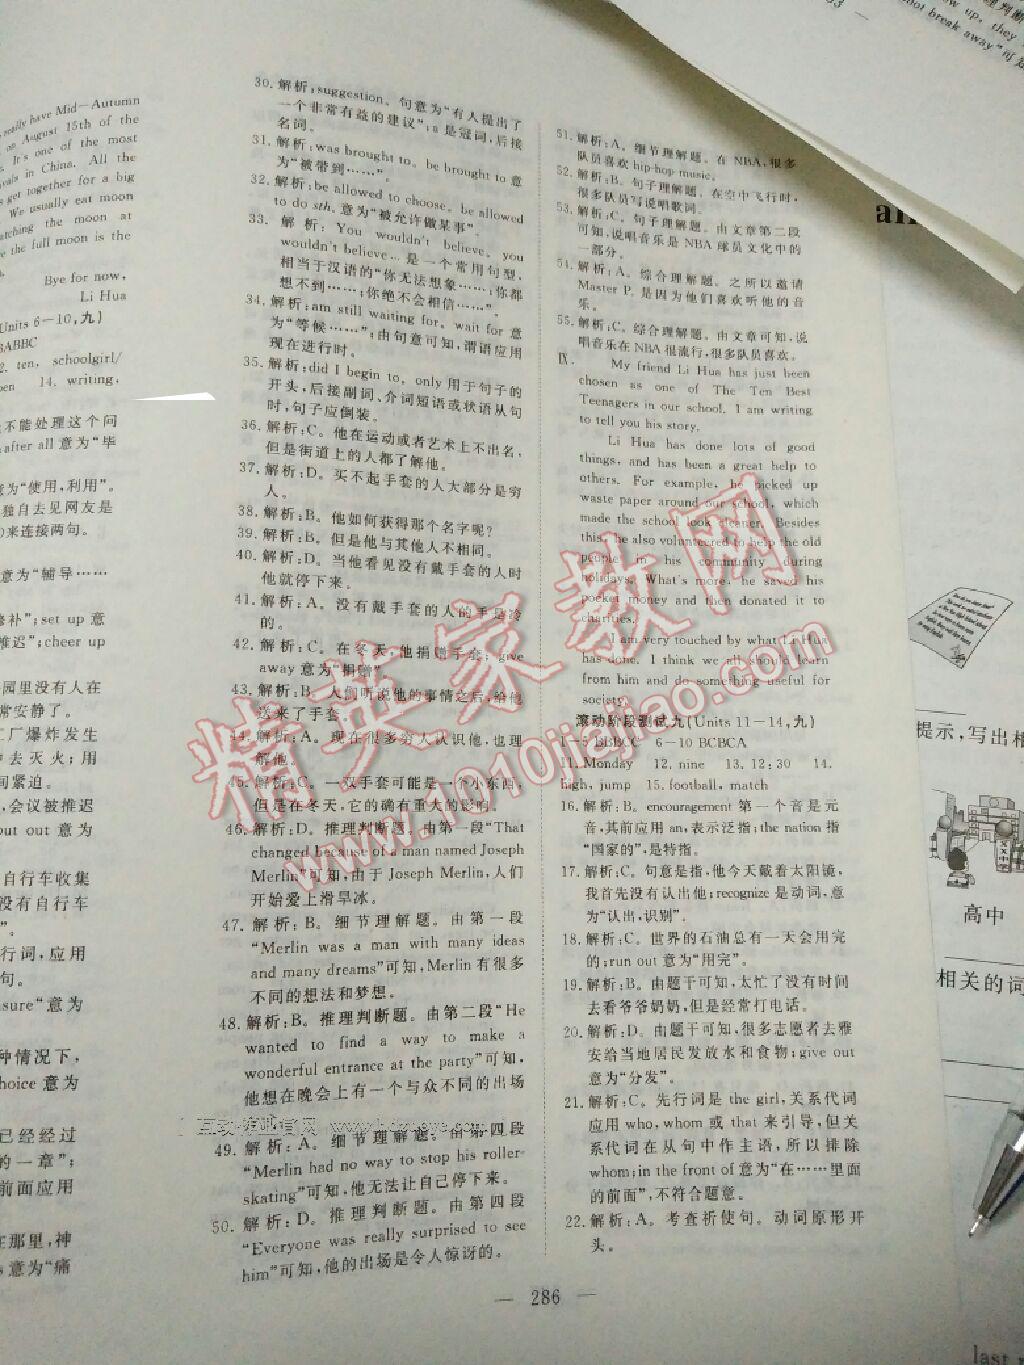 really have Mid—Autumn
on August 15th of the
It's one of the most
vals in China. All the
get together for a big
We usually eat moon
atching the moon at
e the full moon is the
Bye for now,
Li Hua
(Units 6—10,九)
ABBC
2. ten, schoolgirl/
pen 14. writing,
不能处理这个问
after all 意为“毕
意为“使用,利用”。
独自去见网友是
来连接两句。
意为“辅导……
修补”;set up 意
推迟”;cheer up
园里没有人在
常安静了。
工厂爆炸发生
中去灭火;用
间紧迫。
,会议被推迟
out out 意为
自行车收集
没有自行车
行词,应用
句。
asure”意为
种情况下,
choice 意为
已经经过
的一章”;
前面应用
在那里,神
s 意为“痛
30. 解析:suggestion。句意为“有人提出了
一个非常有益的建议”;a 是冠词,后接
名词。
31. 解析:was brought to。be brought to 意
为“被带到……”。
32. 解析:be allowed to choose。be allowed
to do sth. 意为“被允许做某事”。
33. 解析:You wouldn't believe。you
wouldn't believe... 是一个常用句型,
相当于汉语的“你无法想象……;你都
想不到……;你绝不会相信……”。
34. 解析:am still waiting for。wait for 意
为“等候……”;由句意可知,谓语应用
现在进行时。
35. 解析:did I begin to。only 用于句子的
开头,后接副词、介词短语或状语从句
时,句子应倒装。
36. 解析:C。他在运动或者艺术上不出名,
但是街道上的人都了解他。
37. 解析:D。买不起手套的人大部分是穷
人。
38. 解析:B。他如何获得那个名字呢?
39. 解析:B。但是他与其他人不相同。
40. 解析:D。当他看见没有戴手套的人时
他就停下来。
41. 解析:A。没有戴手套的人的手是冷
的。
42. 解析:C。在冬天,他捐赠手套;give
away 意为“捐赠”。
43. 解析:B。人们听说他的事情之后,给他
送来了手套。
44. 解析:A。现在很多穷人认识他,也理
解他。
45. 解析:C。一双手套可能是一个小东西,
但是在冬天,它的确有重大的影响。
46. 解析:D。推理判断题。由第一段“That
changed because of a man named Joseph
Merlin”可知,由于 Joseph Merlin,人们
开始爱上滑旱冰。
47. 解析:B。细节理解题。由第一段
“Merlin was a man with many ideas
and many dreams”可知,Merlin 有很多
不同的想法和梦想。
48. 解析:B。推理判断题。由第二段“He
wanted to find a way to make a
wonderful entrance at the party”可知,
他想在晚会上有一个与众不同的出场
49. 解析:A。细节理解题。由第四段
“Merlin had no way to stop his roller-
skating”可知,他无法让自己停下来。
50. 解析:D。推理判断题。由第四段
“Everyone was really surprised to see
him”可知,他的出场是令人惊讶的。
51. 解析:A。细节理解题。在 NBA,很多
队员喜欢 hip-hop music。
52. 解析:B。句子理解题。在空中飞行时,
很多队员写说唱歌词。
53. 解析:C。句子理解题。由文章第二段
可知,说唱音乐是 NBA 球员文化中的
一部分。
54. 解析:A。综合理解题。之所以邀请
Master P. 是因为他们喜欢听他的音
乐。
55. 解析:C。综合理解题。由文章可知,说
唱音乐在 NBA 很流行,很多队员喜欢。
Ⅸ. My friend Li Hua has just been
chosen as one of The Ten Best
Teenagers in our school. I am writing
to tell you his story.
Li Hua has done lots of good
things, and has been a great help to
others. For example, he picked up
waste paper around our school, which
made the school look cleaner. Besides
this, he also volunteered to help the old
people in his community during
holidays. What's more, he saved his
pocket money and then donated it to
charities.
I am very touched by what Li Hua
has done. I think we all should learn
from him and do something useful for
society.
滚动阶段测试九(Units 11—14,九)
1—5 BBBCC 6—10 BCBCA
11. Monday 12. nine 13. 12:30 14.
high, jump 15. football, match
16. 解析:B。encouragement 第一个音是元
音,其前应用 an,表示泛指;the nation 指
“国家的”,是特指。
17. 解析:C。句意是指,他今天戴着太阳镜,
我首先没有认出他;recognize 是动词,意
为“认出,识别”。
18. 解析:C。世界的石油总有一天会用完
的;run out 意为“用完”。
19. 解析:B。由题干可知,太忙了没有时间
去看爷爷奶奶,但是经常打电话。
20. 解析:D。由题干可知,很多志愿者去雅
安给当地居民发放水和食物;give out
意为“分发”。
21. 解析:C。先行词是 the girl,关系代词
应用 who,whom 或 that 来引导,但关
系代词在从句中作主语,所以排除
whom;in the front of 意为“在……里面
的前面”,不符合题意。
22. 解析:A。考查祈使句。动词原形开
头。
— 286 —
精英家教网
www.1010jiajiao.com
提示,写出相
高中
相关的词
last